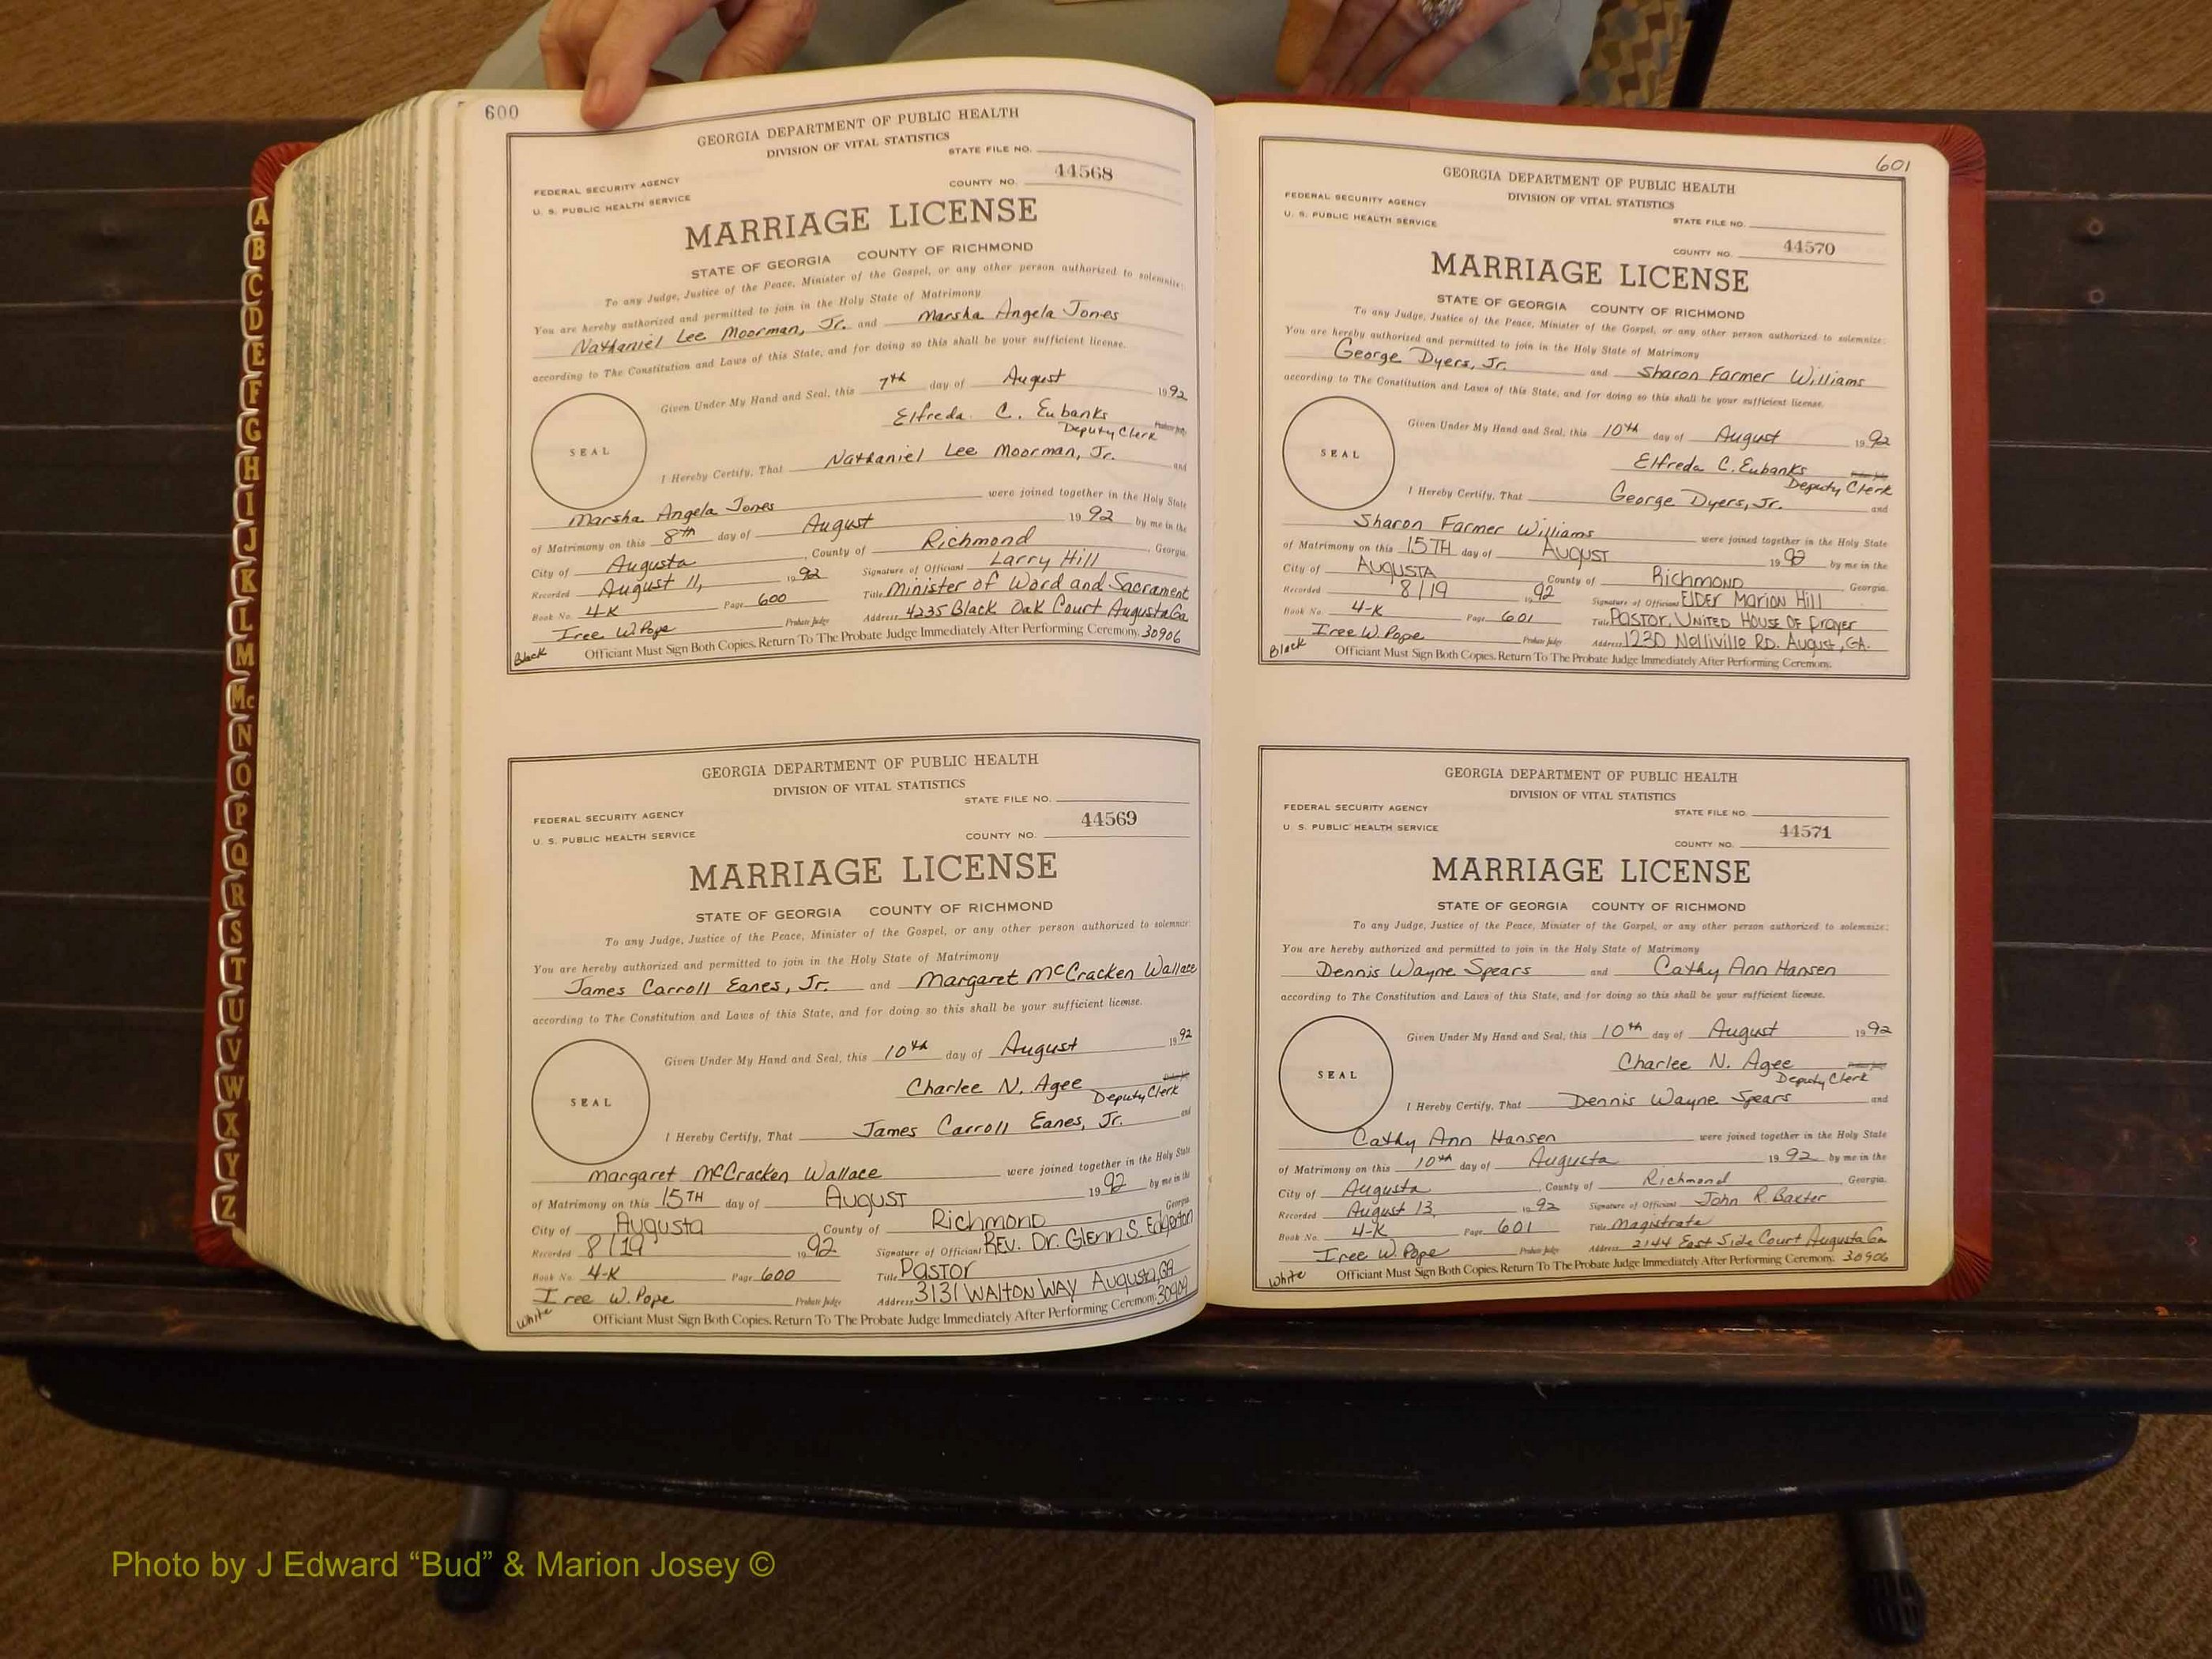 600
GEORGIA DEPARTMENT OF PUBLIC HEALTH
DIVISION OF VITAL STATISTICS
STATE FILE NO.
FEDERAL SECURITY AGENCY
COUNTY NO. 44568
U. S. PUBLIC HEALTH SERVICE
MARRIAGE LICENSE
STATE OF GEORGIA COUNTY OF RICHMOND
To any Judge, Justice of the Peace, Minister of the Gospel, or any other person authorized to solemnize:
You are hereby authorized and permitted to join in the Holy State of Matrimony
Nathaniel Lee Moorman, Jr. and Marsha Angela Jones
according to The Constitution and Laws of this State, and for doing so this shall be your sufficient license.
Given Under My Hand and Seal, this 7th day of August 1992
Elfreda C. Eubanks Probate Judge
Deputy Clerk
SEAL
I Hereby Certify, That Nathaniel Lee Moorman, Jr. and
Marsha Angela Jones were joined together in the Holy State
of Matrimony on this 8th day of August 1992 by me in the
City of Augusta, County of Richmond, Georgia.
Recorded August 11, 1992 Signature of Officiant Larry Hill
Book No. 4-K Page 600 Title Minister of Word and Sacrament
Iree W. Pope Probate Judge Address 4235 Black Oak Court Augusta Ga
Black Officiant Must Sign Both Copies. Return To The Probate Judge Immediately After Performing Ceremony. 30906
GEORGIA DEPARTMENT OF PUBLIC HEALTH
DIVISION OF VITAL STATISTICS
STATE FILE NO.
FEDERAL SECURITY AGENCY
44569
U. S. PUBLIC HEALTH SERVICE COUNTY NO.
MARRIAGE LICENSE
STATE OF GEORGIA COUNTY OF RICHMOND
To any Judge, Justice of the Peace, Minister of the Gospel, or any other person authorized to solemnize:
You are hereby authorized and permitted to join in the Holy State of Matrimony
James Carroll Eanes, Jr. and Margaret McCracken Wallace
according to The Constitution and Laws of this State, and for doing so this shall be your sufficient license.
Given Under My Hand and Seal, this 10th day of August 1992
Charlee N. Agee Probate Judge
Deputy Clerk
SEAL
I Hereby Certify, That James Carroll Eanes, Jr. and
Margaret McCracken Wallace were joined together in the Holy State
of Matrimony on this 15TH day of AUGUST 1992 by me in the
City of Augusta County of RICHMOND Georgia
Recorded 8/19 1992 Signature of Officiant REV. Dr. Glenn S. Edgerton
Book No. 4-K Page 600 Title Pastor
Iree W. Pope Probate Judge Address 3131 WALTON WAY Augusta, GA
White Officiant Must Sign Both Copies. Return To The Probate Judge Immediately After Performing Ceremony. 30909
601
GEORGIA DEPARTMENT OF PUBLIC HEALTH
DIVISION OF VITAL STATISTICS
FEDERAL SECURITY AGENCY
U. S. PUBLIC HEALTH SERVICE STATE FILE NO.
COUNTY NO. 44570
MARRIAGE LICENSE
STATE OF GEORGIA COUNTY OF RICHMOND
To any Judge, Justice of the Peace, Minister of the Gospel, or any other person authorized to solemnize:
You are hereby authorized and permitted to join in the Holy State of Matrimony
George Dyers, Jr. and Sharon Farmer Williams
according to The Constitution and Laws of this State, and for doing so this shall be your sufficient license.
Given Under My Hand and Seal, this 10th day of August 1992
Elfreda C. Eubanks Probate Judge
Deputy Clerk
SEAL
I Hereby Certify, That George Dyers, Jr. and
Sharon Farmer Williams were joined together in the Holy State
of Matrimony on this 15TH day of AUGUST 1992 by me in the
City of AUGUSTA County of RICHMOND Georgia.
Recorded 8/19 1992 Signature of Officiant ElDEr Marion Hill
Book No. 4-K Page 601 Title PASTOR, UNITED HOUSE OF Prayer
Iree W. Pope Probate Judge Address 1230 Nelliville RD. August, GA.
Black Officiant Must Sign Both Copies. Return To The Probate Judge Immediately After Performing Ceremony.
GEORGIA DEPARTMENT OF PUBLIC HEALTH
DIVISION OF VITAL STATISTICS
FEDERAL SECURITY AGENCY STATE FILE NO.
U. S. PUBLIC HEALTH SERVICE 44571
COUNTY NO.
MARRIAGE LICENSE
STATE OF GEORGIA COUNTY OF RICHMOND
To any Judge, Justice of the Peace, Minister of the Gospel, or any other person authorized to solemnize:
You are hereby authorized and permitted to join in the Holy State of Matrimony
Dennis Wayne Spears and Cathy Ann Hansen
according to The Constitution and Laws of this State, and for doing so this shall be your sufficient license.
Given Under My Hand and Seal, this 10th day of August 1992
Charlee N. Agee Probate Judge
Deputy Clerk
SEAL
I Hereby Certify, That Dennis Wayne Spears and
Cathy Ann Hansen were joined together in the Holy State
of Matrimony on this 10th day of Augusta 1992 by me in the
City of Augusta, County of Richmond, Georgia.
Recorded August 13, 1992 Signature of Officiant John R. Baxter
Book No. 4-K Page 601 Title Magistrate
Iree W. Pope Probate Judge Address 2144 East Side Court Augusta Ga
White Officiant Must Sign Both Copies. Return To The Probate Judge Immediately After Performing Ceremony. 30906
A
B
C
D
E
F
G
H
I
J
K
L
M
Mc
N
O
P
Q
R
S
T
U
V
W
X
Y
Z
Photo by J Edward “Bud” & Marion Josey ©